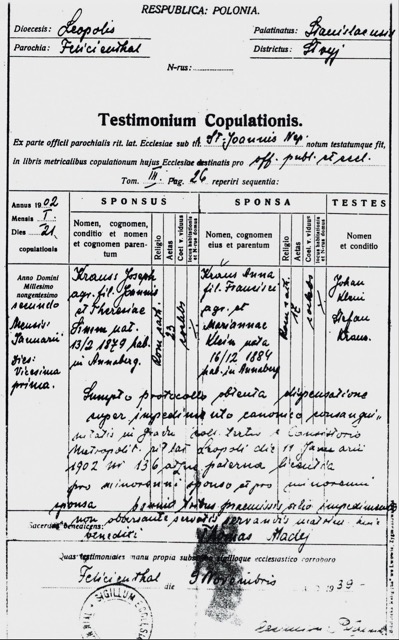 RESPUBLICA: POLONIA.
Dioecesis: Leopolis Palatinatus: Stanislaoviensis
Parochia: Felicienthal Districtus: Stryj
N-rus:
Testimonium Copulationis.
Ex parte officii parochialis rit. lat. Ecclesiae sub tit. St. Joannis Nep. notum testatumque fit,
in libris metricalibus copulationum hujus Ecclesiae destinatis pro off. publ. et eccl.
Tom. III. Pag. 26 reperiri sequentia:
Annus 1902
Mensis I.
Dies 21.
copulationis
SPONSUS SPONSA TESTES
Nomen, cognomen, conditio et nomen et cognomen parentum
Religio
Aetas
Coel. v. viduus
Nomen, cognomen eius et parentum
Religio
Aetas
Coel. v. viduus
Nomen et conditio
Anno Domini
Millesimo
nongentesimo
secundo
Mensis
Januarii
Dies:
Vicesima
prima.
Krauss Joseph
agr. fil. Joannis
et Theresiae
Simm nat.
13/2 1879 hab.
in Annaberg.
Rom. cath.
23
caelebs
Kraus Anna
fil. Francisci
agr. et
Mariannae
Klein nata
16/12 1884
hab. in Annaberg
Rom. cath.
17
caelebs
Johan
Stefan
Kraus.
Sumpto protocollo obtenta dispensatione
super impedimento canonico consangui-
nitatis in gradu tertio Consistorio
Metropolit. rit. lat. Leopoli die 11 Januarii
1902 Nr 136 atque paterna licentia
pro minorenni sponso et pro minorenni
sponsa bannis tribus praemissis nullo impedimento
non obstante servatis servandis
benedicti Thomas Madej
Sacerdos benedicens:
Quas testimoniales manu propia subscribo sigilloque ecclesiastico corroboro
Felicienthal die 9 Novembris 1939
SIGILLUM ECCLESIAE